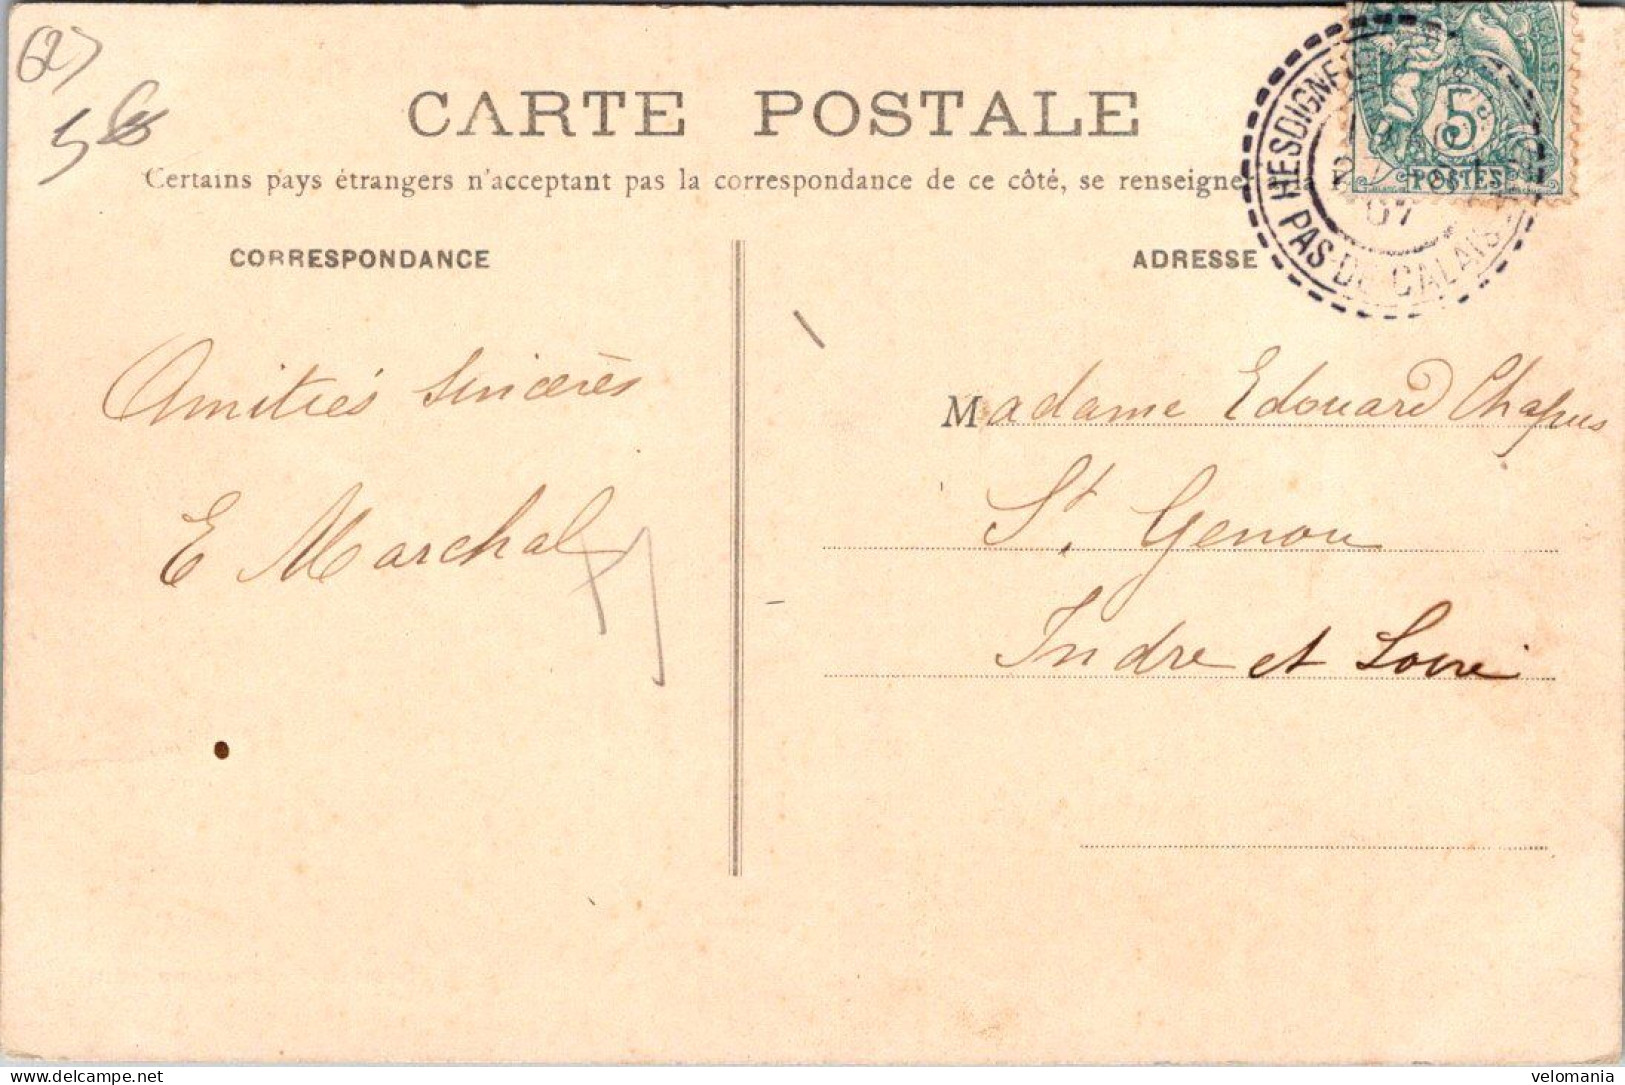 62
CARTE POSTALE
Certains pays étrangers n'acceptant pas la correspondance de ce côté, se renseigner à la
CORRESPONDANCE
ADRESSE
HESDIGNEUL
PAS-DE-CALAIS
07
5
POSTES
Amitiés sincères
E Marchal
Madame Edouard Chapus
St. Genou
Indre et Loire
delcampe.net
velomania